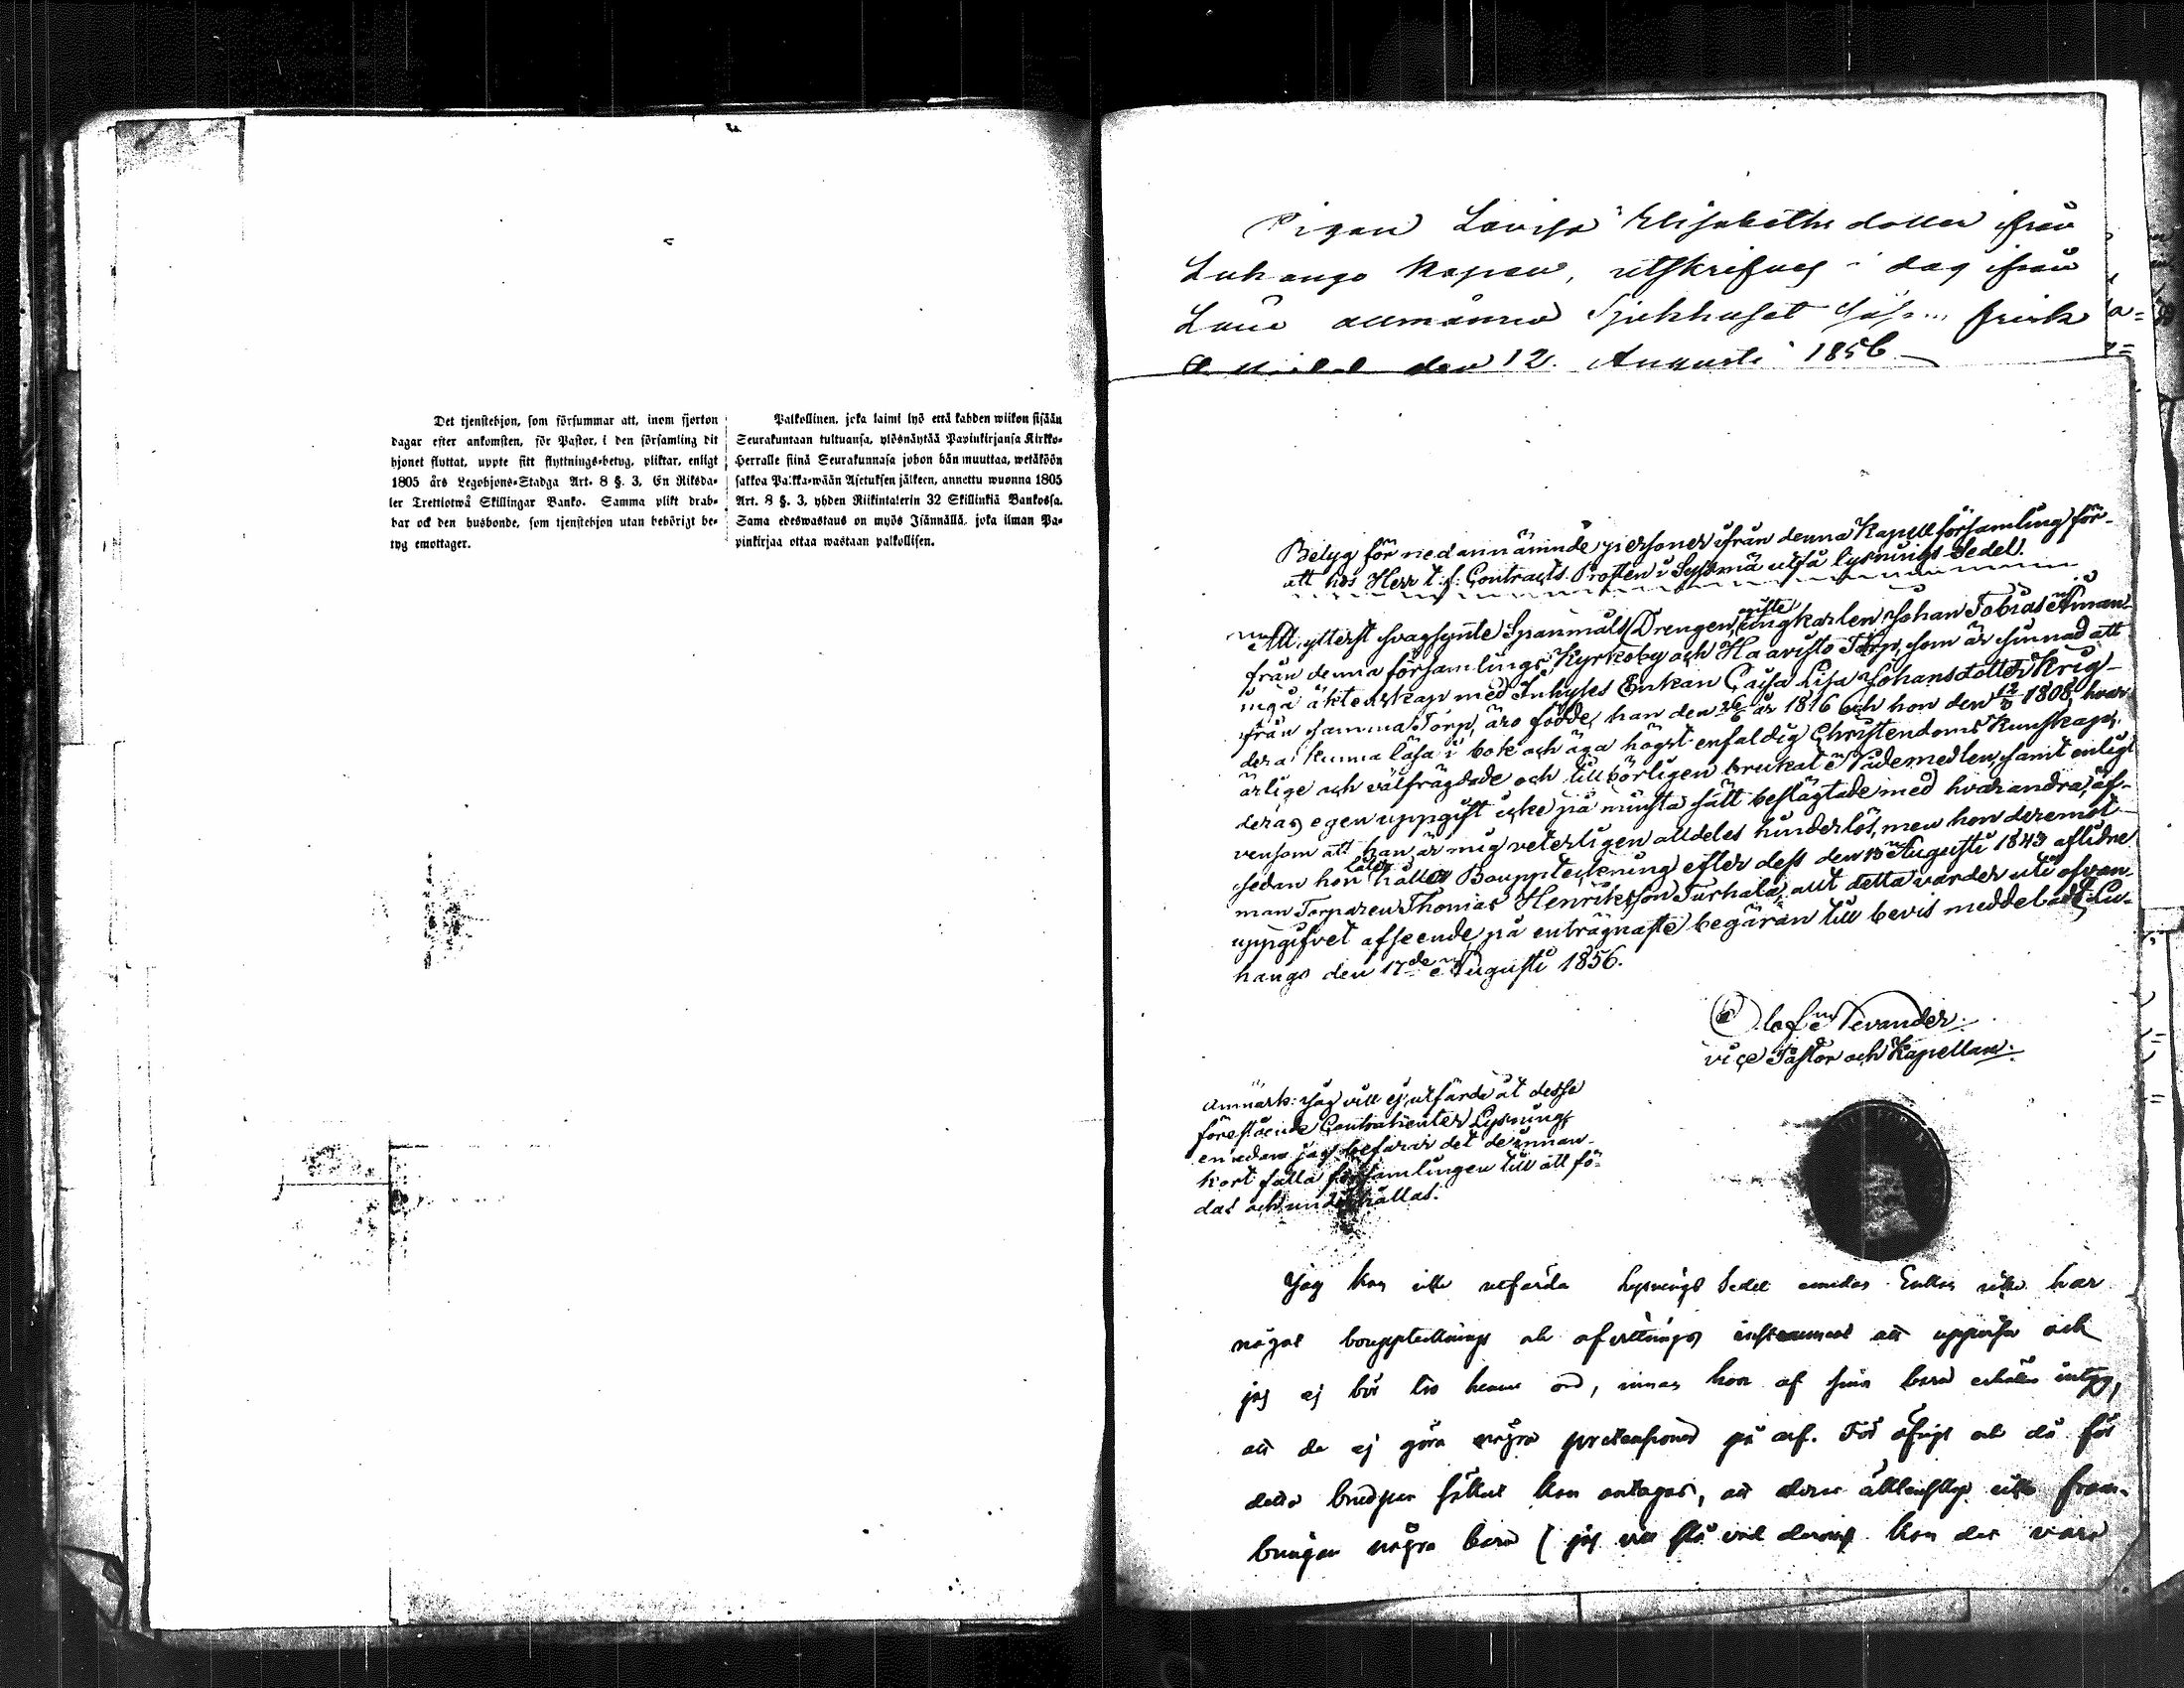 Det tjenstehjon, som försummar att, inom fjorton
dagar efter ankomsten, för Pastor, i den församling dit
hjonet flyttat, uppte sitt flyttnings-betyg, pliktar, enligt
1805 års Legohjons-Stadga Art. 8 §. 3. En Riksda-
ler Trettiotwå Skillingar Banko. Samma plikt drab-
bar ock den husbonde, som tjenstehjon utan behörigt be-
tyg emottager.
Palkollinen, joka laimi lyö että kahden wiikon sisään
Seurakuntaan tultuansa, ylösnäytää Papinkirjansa Kirkko-
Herralle siinä Seurakunnasa johon hän muuttaa, wetäköön
sakkoa Palkka-wään Asetuksen jälkeen, annettu wuonna 1805
Art. 8 §. 3, yhden Riikintalerin 32 Skillinkiä Bankossa.
Sama edeswastaus on myös Isännällä, joka ilman Pa-
pinkirjaa ottaa wastaan palkollisen.
Pigan Lovisa Elisabeths dotter ifrån
Luhango Kapell, utskrifves i dag ifrån
Läns allmänna Sjukhuset frisk
den 12. Augusti 1856
Betyg för nedannämnde personer ifrån denna Kapellförsamling för
att hos Herr t.f. Contracts Prosten i Sysmä utfå lysnings-Sedel.
Att ytterst svagsynte Spanmåls Drengen, ungkarlen Johan Tobias Åman
från denna församlings Kyrkoby och Haavisto Torp, som är sinnad att
ingå äktenskap med Inhyses Enkan Caisa Lisa Johansdotter Krig
från samma Torp, äro födde, han den 26/6 år 1816 och hon den 1808, hvar-
dera kunna läsa i bok och äga högst enfaldig Christendoms Kunskap,
ärlige och välfrägdade och tillbörligen brukat Nådemedlen, samt enligt
deras egen uppgift icke på minsta sätt beslägtade med hvarandra, äf-
vensom att han är mig veterligen alldeles hinderlös, men hon deremot
sedan hon låtit hålla Bouppteckning efter dess den 13 Augusti 1843 aflidne
man Torparen Thomas Henriksson Turhala, allt detta varder uti ofvan
uppgifvet afseende på enträgnaste begäran till bevis meddeladt, Lu-
hango den 17de Augusti 1856.
Olof Nevander.
vice Pastor och Kapellan.
Anmärk: Jag vill ej utfärda åt desse
förestående Contrahenter Lysning,
enedan jag befarar det de innan
kort falla församlingen till att fö-
das och underhållas.
Jag kan icke utfärda lysnings Sedel emedan Enkan icke har
något boupptecknings och afvittrings instrument att uppvisa och
jag ej bör tro henne ord, innan hon af sina barn erhåller intyg,
att de ej göra några pretensioner på arf. För öfrigt och då för
detta brudpar sättet kan antagas, att deras äktenskap icke fram-
bringar några barn ( jag vill stå vid kan det vara